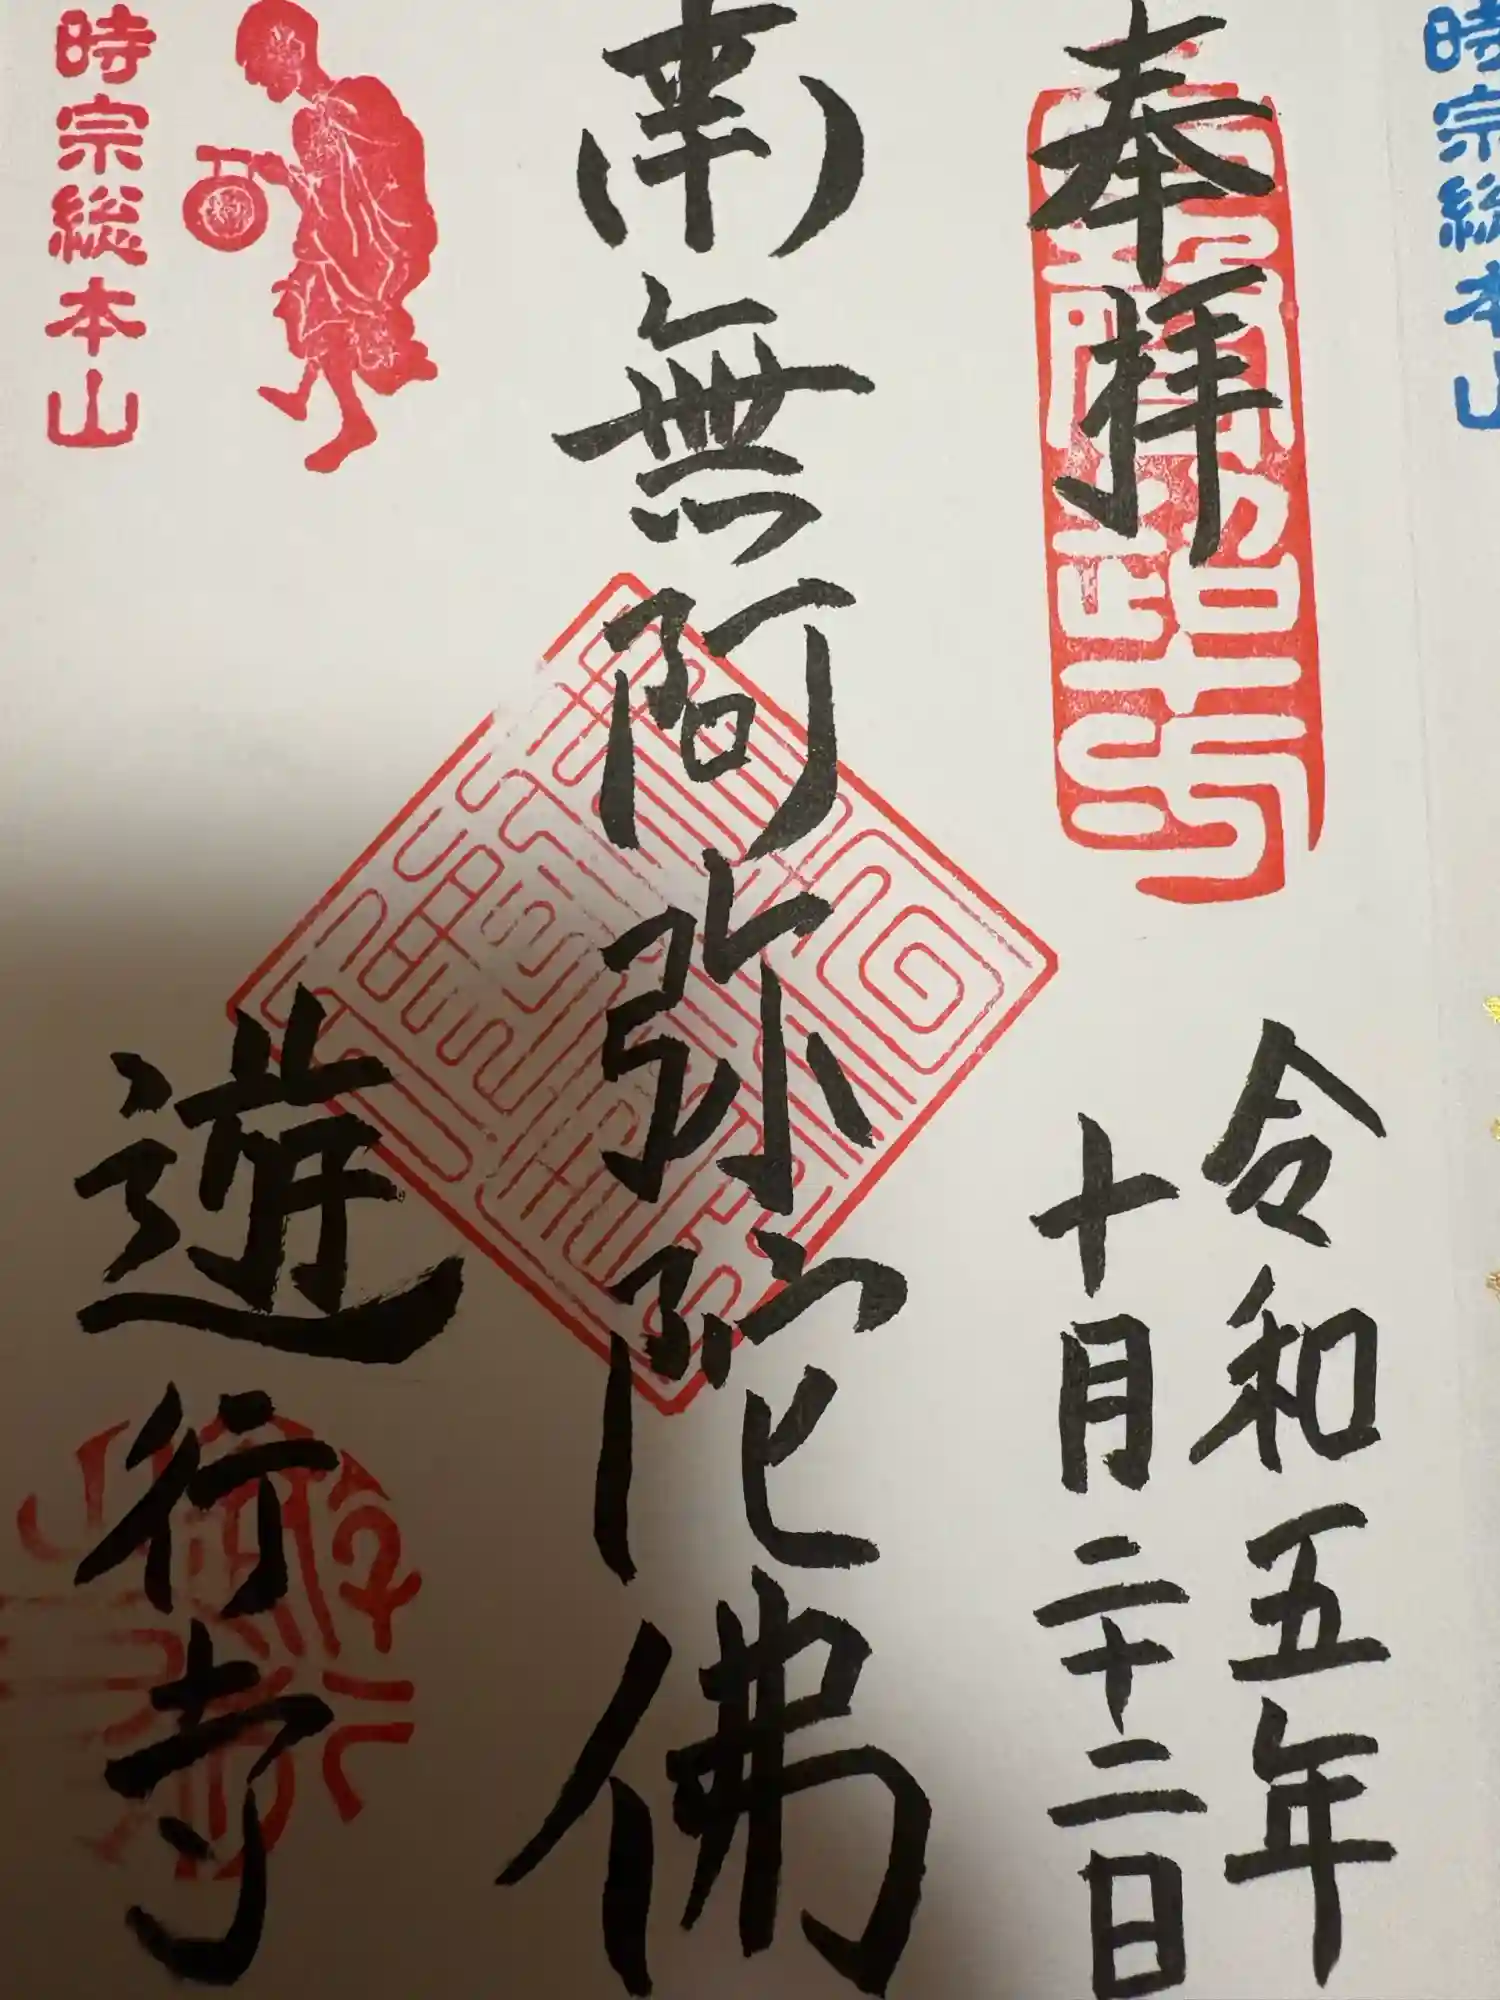 時宗総本山
奉拝
令和五年
十月二十二日
南無阿弥陀佛
時宗総本山
遊行寺